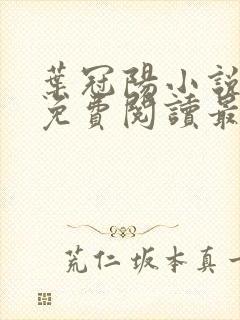 葉冠陽小說
免費閱讀最
荒仁坂本真一